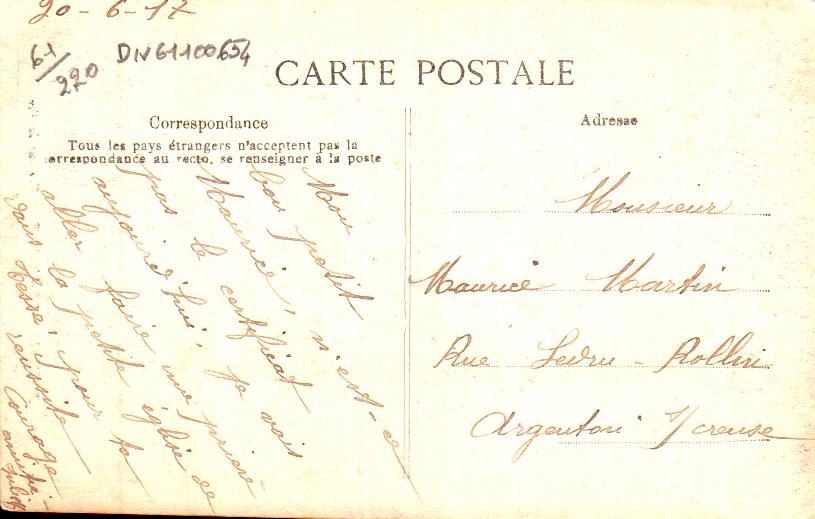 20-6-17
61/220
DIV61100654
CARTE POSTALE
Correspondance
Tous les pays étrangers n'acceptent pas la
correspondance au recto, se renseigner à la poste
Adresse
Mon
bon petit
Maurice, n'est-ce
pas le certificat
aujourd'hui, je vais
aller faire une prière
dans la petite église de
pour ta
réussite
Courage
amitié
Monsieur
Maurice Martin
Rue Ledru-Rollin
Argenton s/ creuse